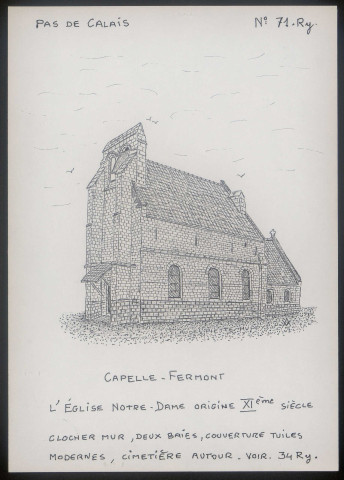 PAS DE CALAIS
Nº 71-Ry.
CAPELLE-FERMONT
L'ÉGLISE NOTRE-DAME ORIGINE XIème SIÈCLE
CLOCHER MUR, DEUX BAIES, COUVERTURE TUILES
MODERNES, CIMETIÈRE AUTOUR. VOIR. 34 Ry.